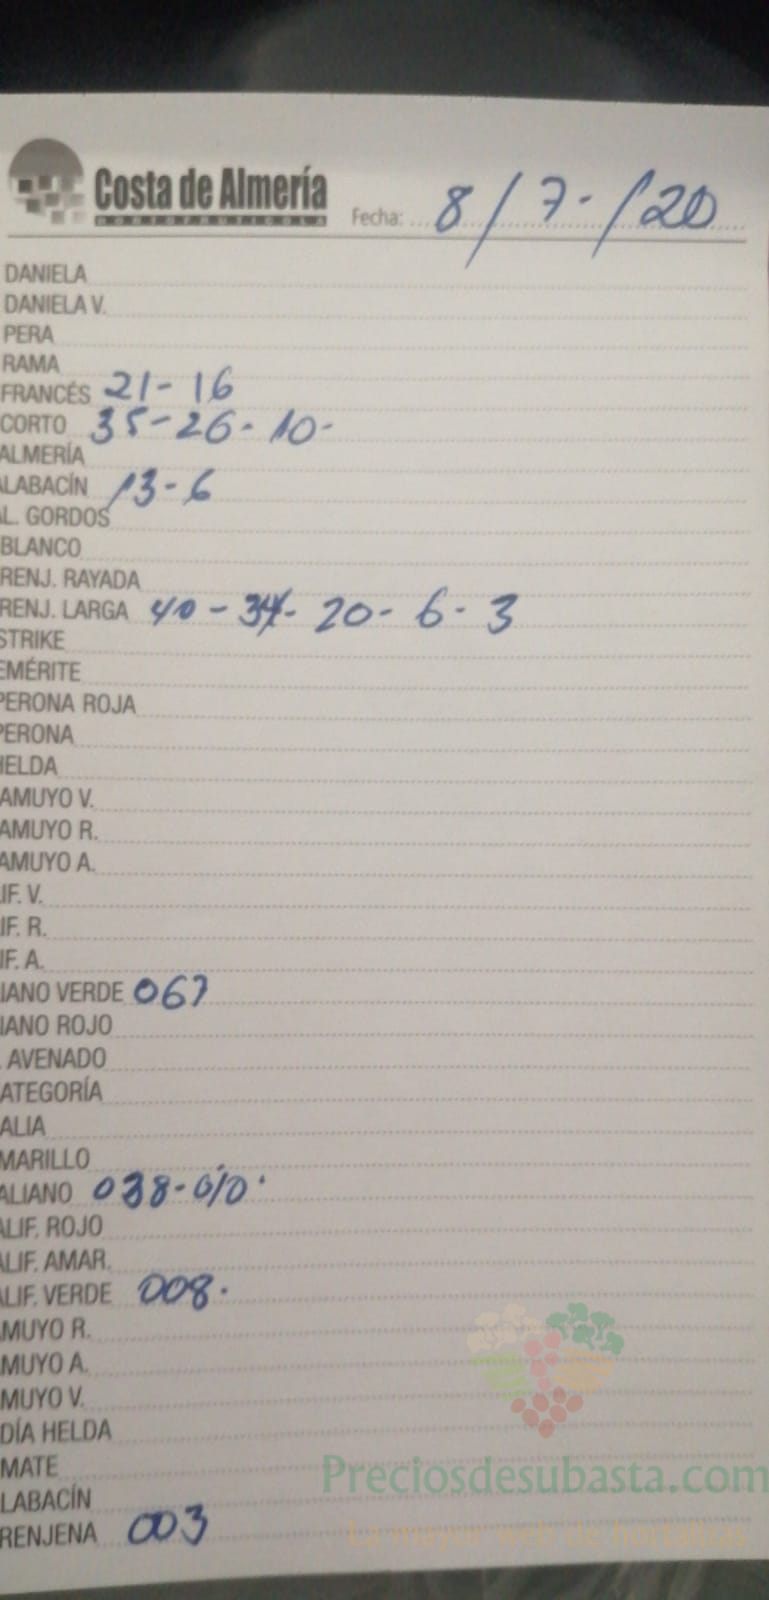 Costa de Almería
HORTOFRUTICOLA
Fecha: 8/7-/20
DANIELA
DANIELA V.
PERA
RAMA
FRANCÉS 21-16
CORTO 35-26-10-
ALMERÍA
LABACÍN 13-6
L. GORDOS
BLANCO
RENJ. RAYADA
RENJ. LARGA 40-34-20-6-3
STRIKE
EMÉRITE
PERONA ROJA
PERONA
HELDA
AMUYO V.
AMUYO R.
AMUYO A.
IF. V.
IF. R.
IF. A.
IANO VERDE 067
IANO ROJO
. AVENADO
ATEGORÍA
ALIA
MARILLO
ALIANO 038-010.
ALIF. ROJO
ALIF. AMAR.
ALIF. VERDE 008.
MUYO R.
MUYO A.
MUYO V.
DÍA HELDA
MATE
LABACÍN
RENJENA 003
Preciosdesubasta.com
La mayor web de hortalizas